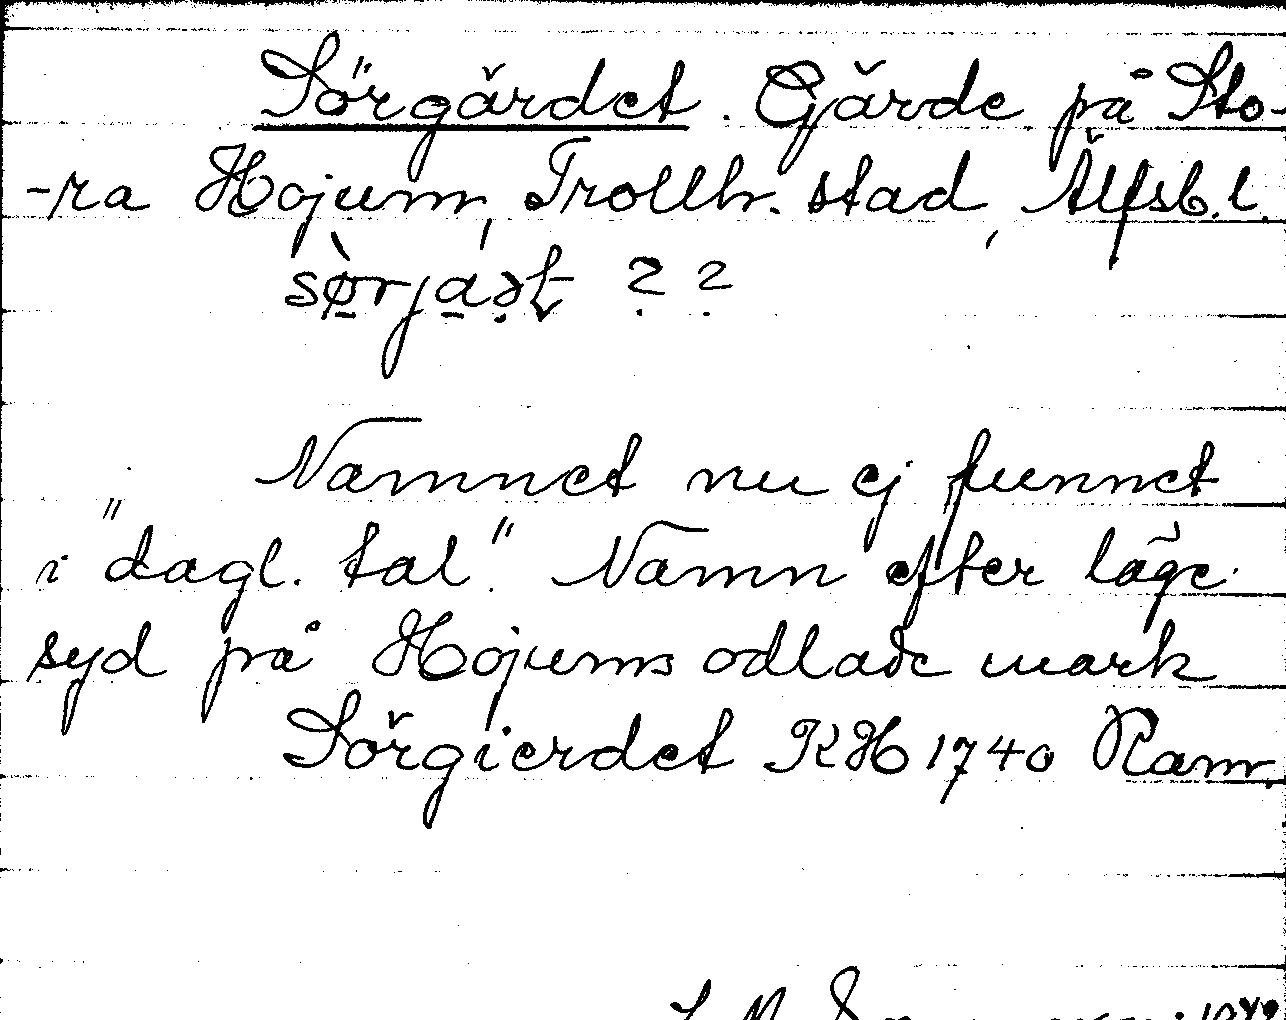 Sörgärdet. Gärde på Sto-
-ra Hojum, Trollh. stad, Älfsb. l.
sørjaət ? ?
Namnet nu ej funnet
i "dagl. tal". Namn efter läge
syd på Hojums odlade mark
Sörgierdet KH 1740 Ram.